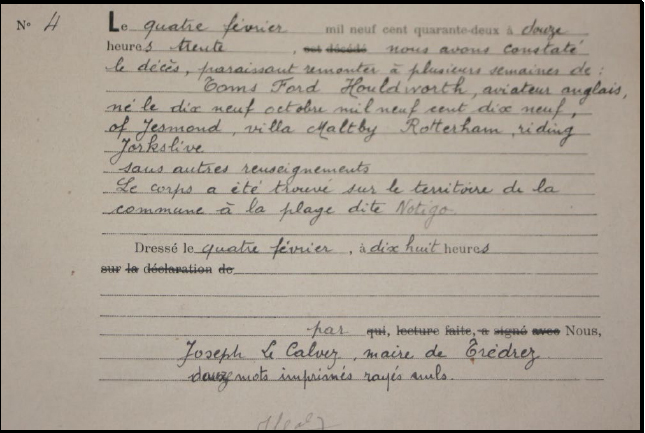 N° 4
Le quatre février mil neuf cent quarante-deux à douze
heures trente, est décédé nous avons constaté
le décès, paraissant remonter à plusieurs semaines de :
Toms Ford Houldworth, aviateur anglais,
né le dix neuf octobre mil neuf cent dix neuf,
of Jesmond, villa Maltby Rotterham, riding
Jorkslive
sans autres renseignements
Le corps a été trouvé sur le territoire de la
commune à la plage dite Notigo
Dressé le quatre février, à dix huit heures
sur la déclaration de
par qui, lecture faite, a signé avec Nous,
Joseph Le Calvez, maire de Trédrez
douze mots imprimés rayés nuls.